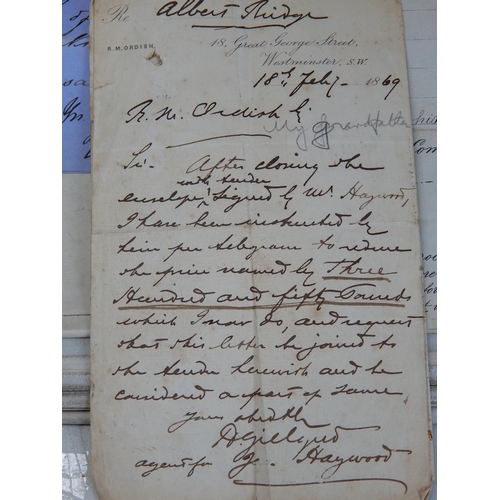 Re Albert Bridge
R. M. ORDISH.
18, Great George Street,
Westminster, S.W.
18th Feby 1869
R. M. Ordish
My grandfather
Sir- After closing the
with tender
envelope signed by Mr Haywood,
I have been instructed by
him per telegram to reduce
the price named by Three
Hundred and fifty Pounds
which I now do, and request
that this letter be joined to
the tender herewith and be
considered a part of same
Yours obedtly
agent for Haywood